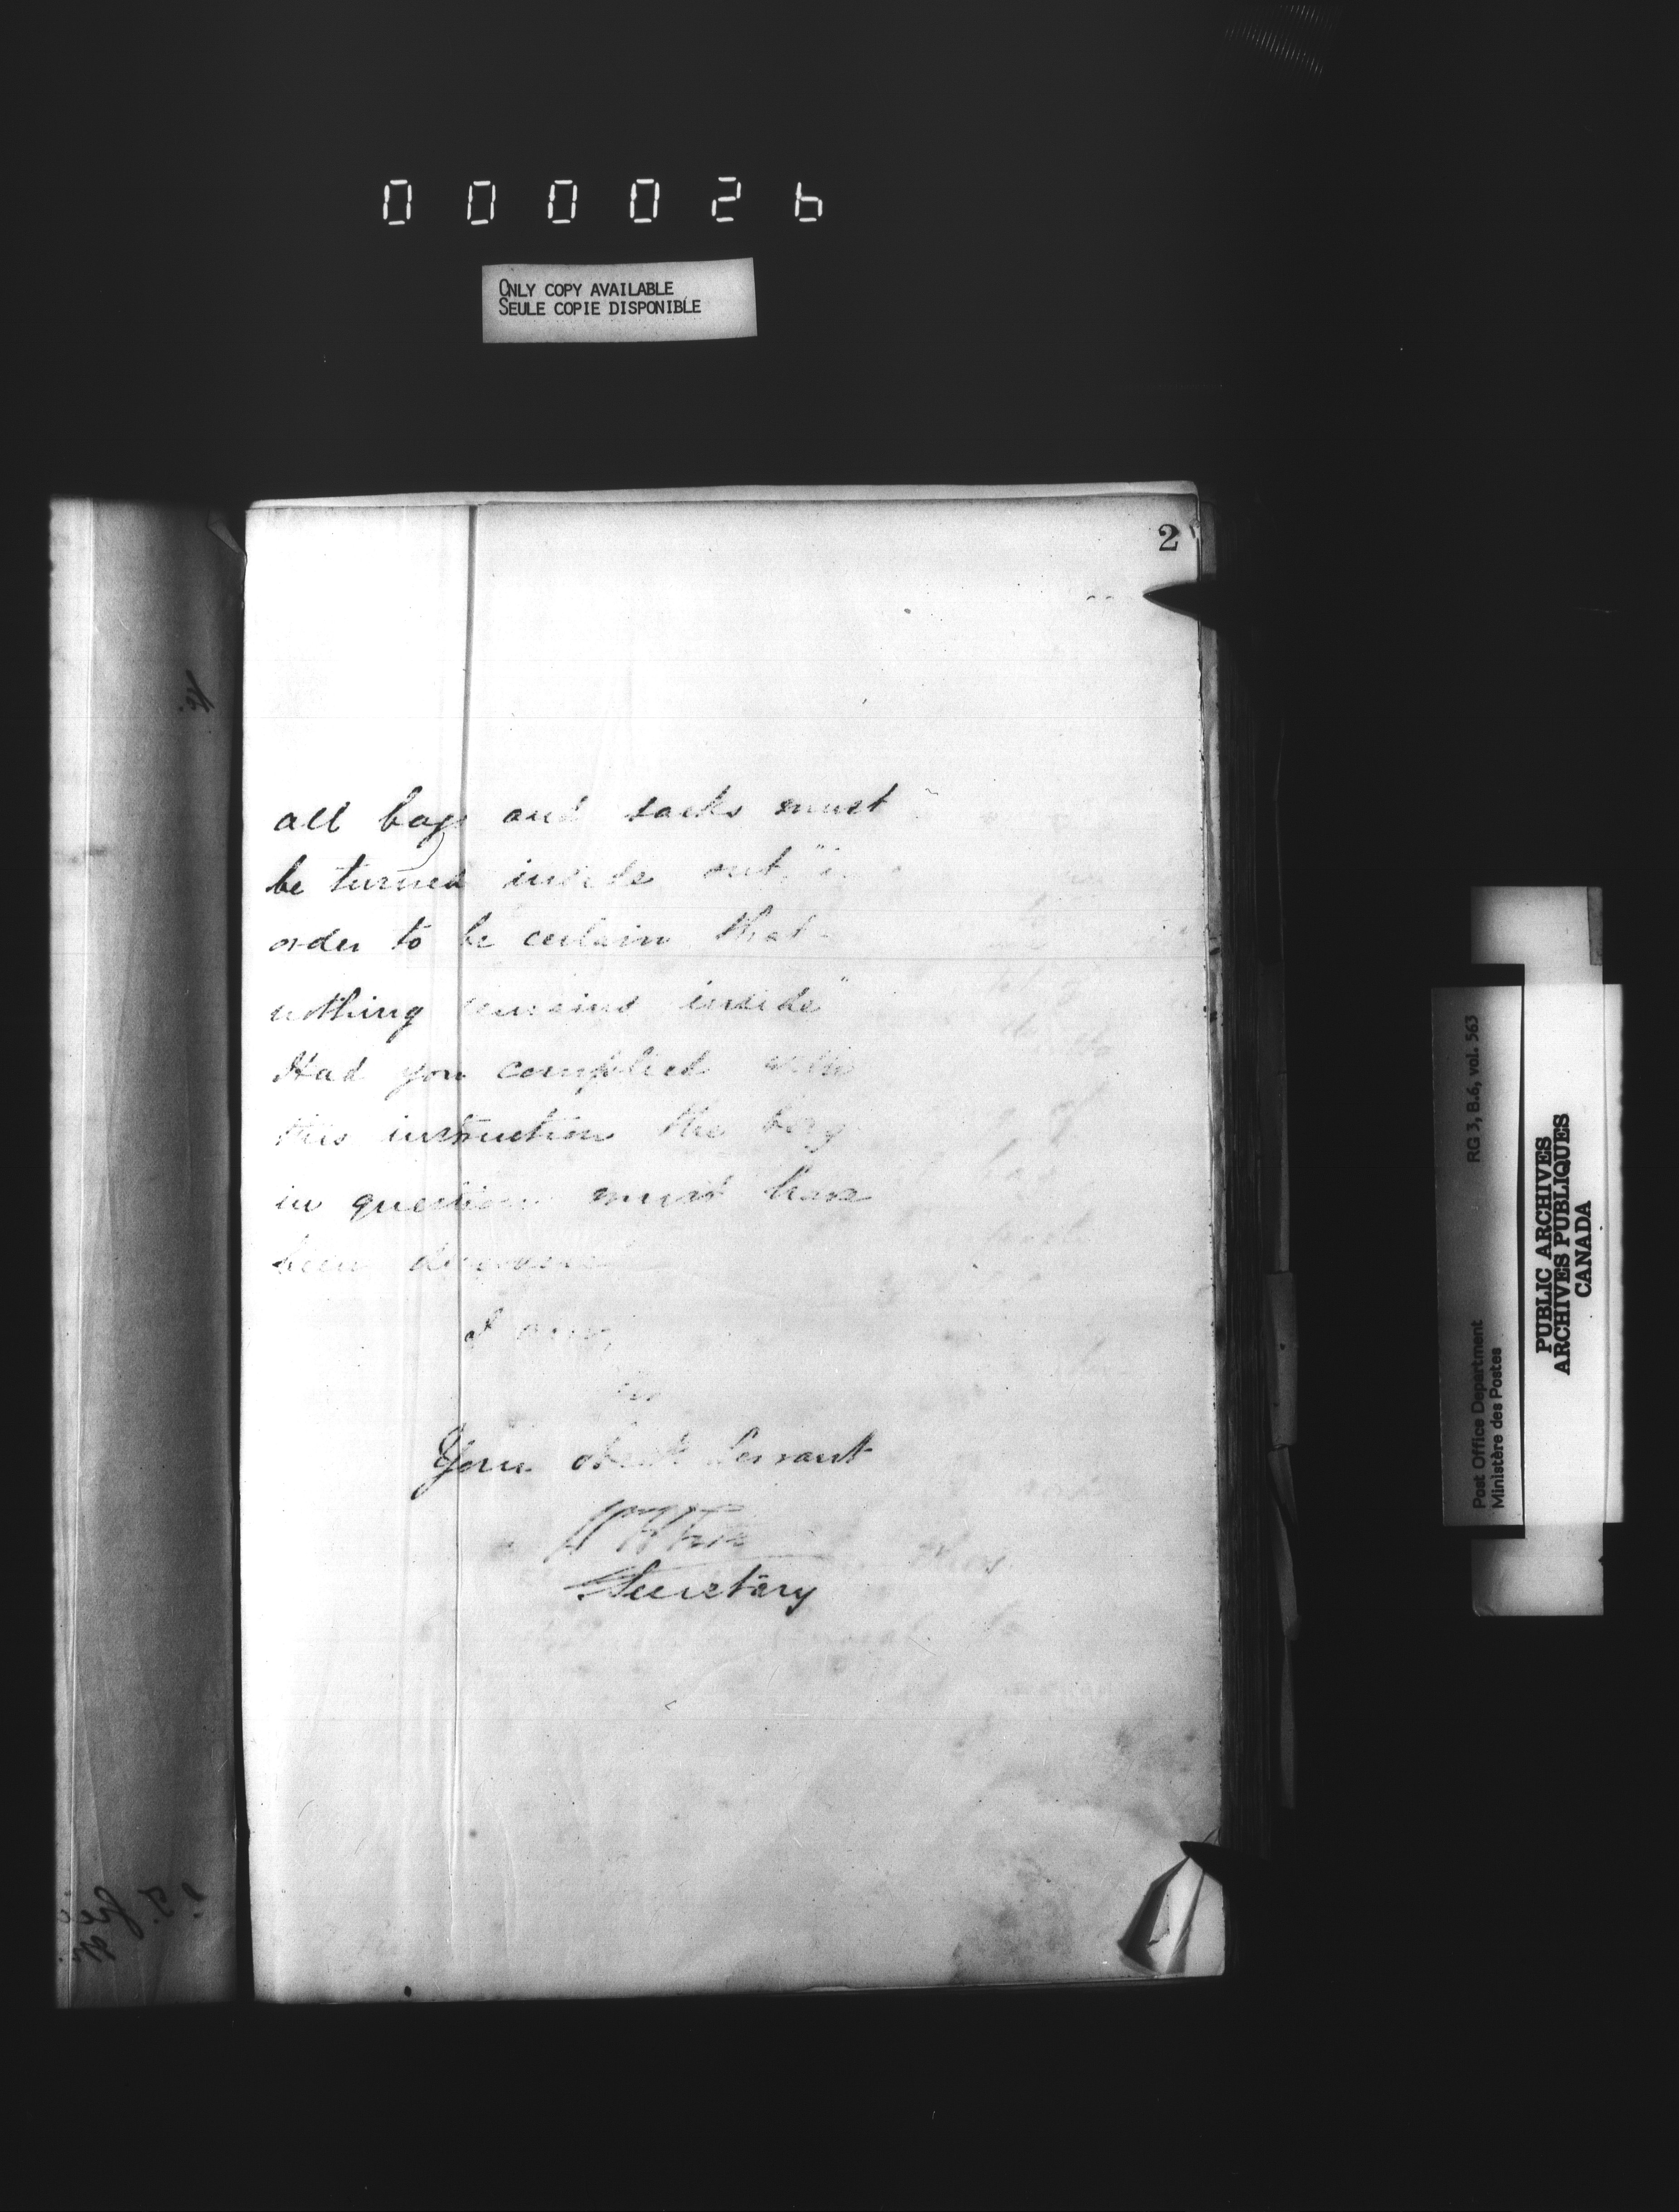 000026
ONLY COPY AVAILABLE
SEULE COPIE DISPONIBLE
2
all bags and sacks must
be turned inside out "in
order to be certain that
nothing remains inside"
Had you complied with
this instruction the bag
in question must have
been discovered
I am,
Sir
Your obedt Servant
Secretary
RG 3, B.6, vol. 563
Post Office Department
Ministère des Postes
PUBLIC ARCHIVES
ARCHIVES PUBLIQUES
CANADA